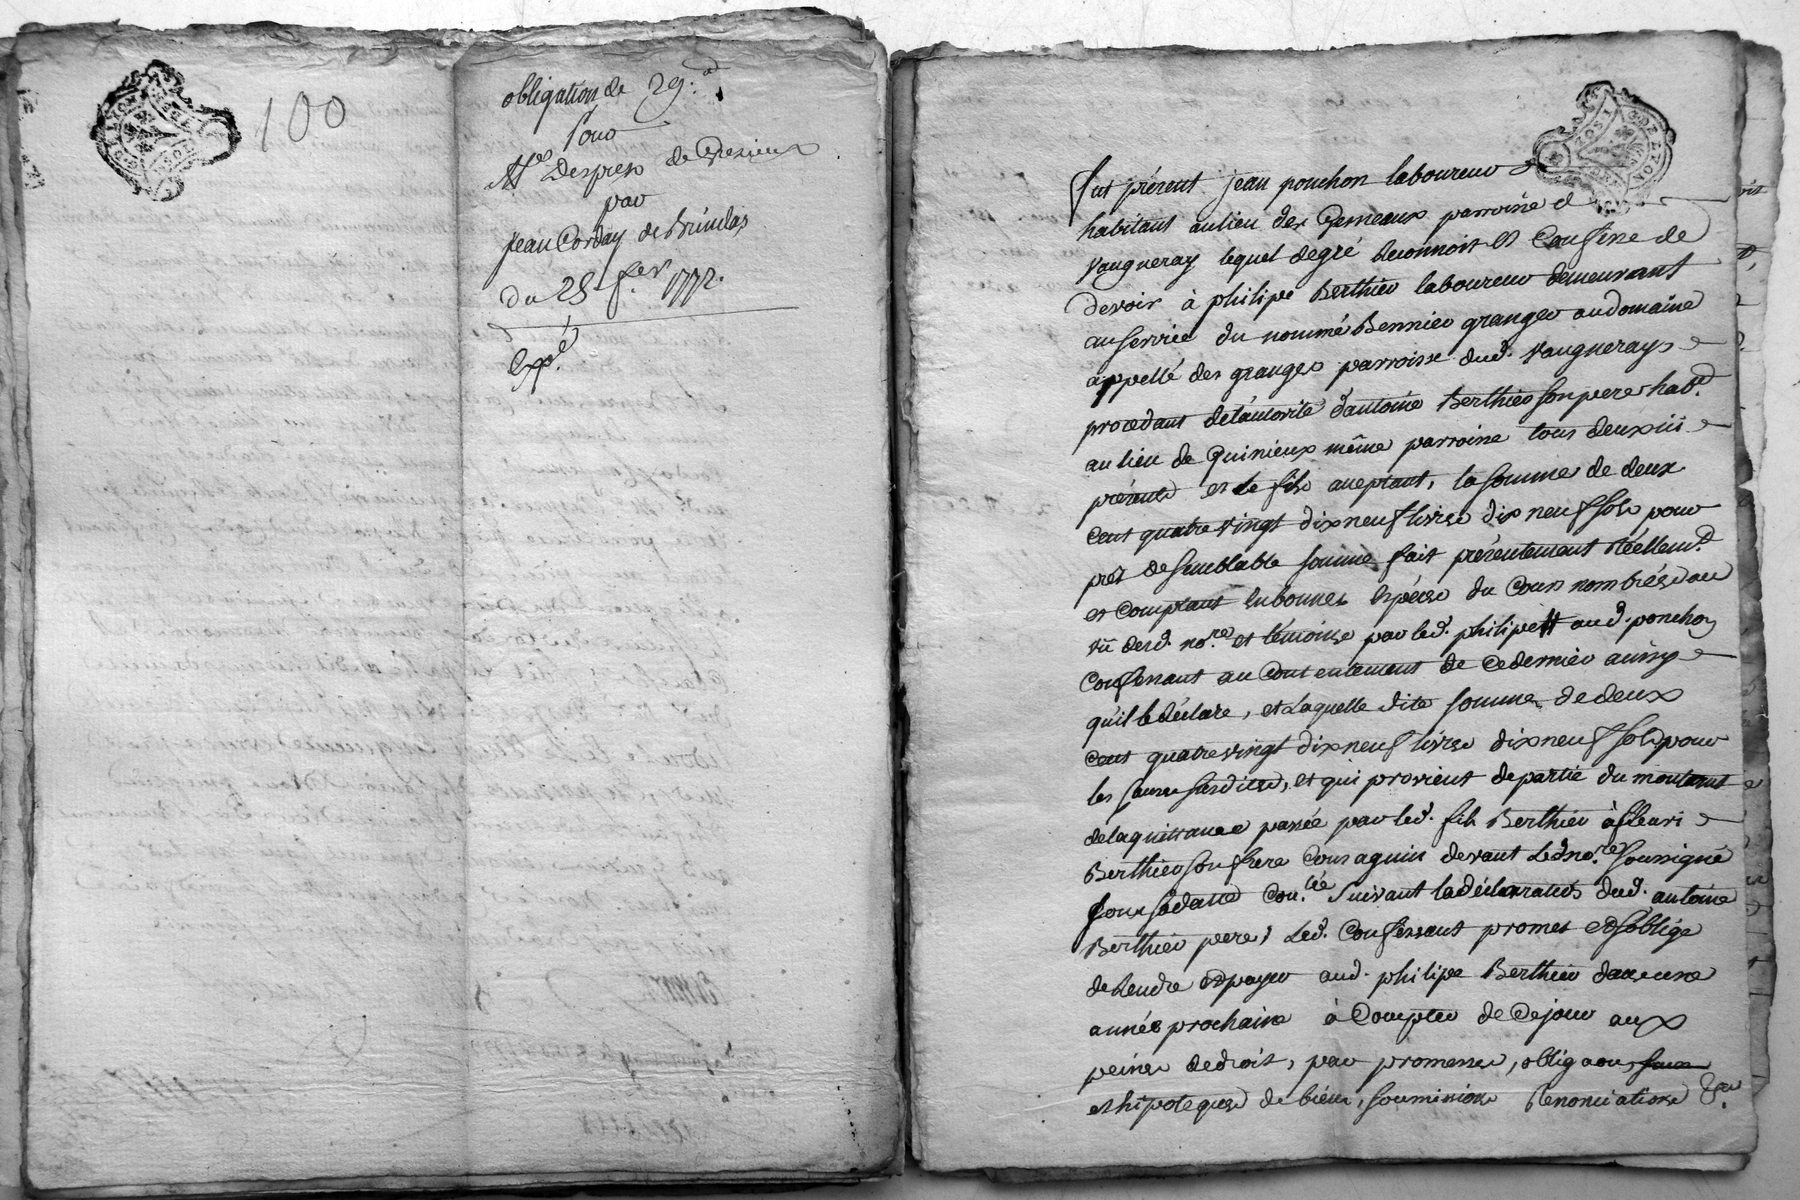 100
obligation de 29.#
Pour
Mr Desprez de
par
Jean Corday de Brindas
du 28 fer. 1772.
Expé.
fut présent jean ponchon laboureur
habitant au lieu des Gemeaux parroisse d
Vaugneray lequel de gré reconnoit et Confesse de
devoir à philipe Berthier laboureur demeurant
au service du nommé Bennier granger au domaine
appellé des granges parroisse dud. Vaugneray
procedant de l'autorité d'antoine Berthier son pere habt.
au lieu de Quinieux même parroisse tous deux ici
présents et le fils acceptant, la somme de deux
cent quatre vingt dix neuf livres dix neuf sols pour
prêt de semblable somme fait présentement réellemt.
et comptant en bonnes espèces du Cours nombrées au
vû desd. nore. et témoins par led. philipe au d. ponchon
confessant au Contentement de ce dernier ainsy
qu'il le déclare, et laquelle dite somme de deux
cent quatre vingt dix neuf livres dix neuf sols pour
les causes susdites, et qui provient de partie du montant
de la quittance passée par led. fils Berthier à fleuri
Berthier son frere Cejourd'huy devant led nore. soussigné
sous sa datte Conlée. suivant la déclaration dud. antoine
Berthier pere, Led. Confessant promet et s'oblige
de rendre et payer aud. philipe Berthier dans une
année prochaine à Compter de ce jour aux
peines de droit, par promesses, obligaons,
et hipoteques de biens, soumissions Renonciations &a.